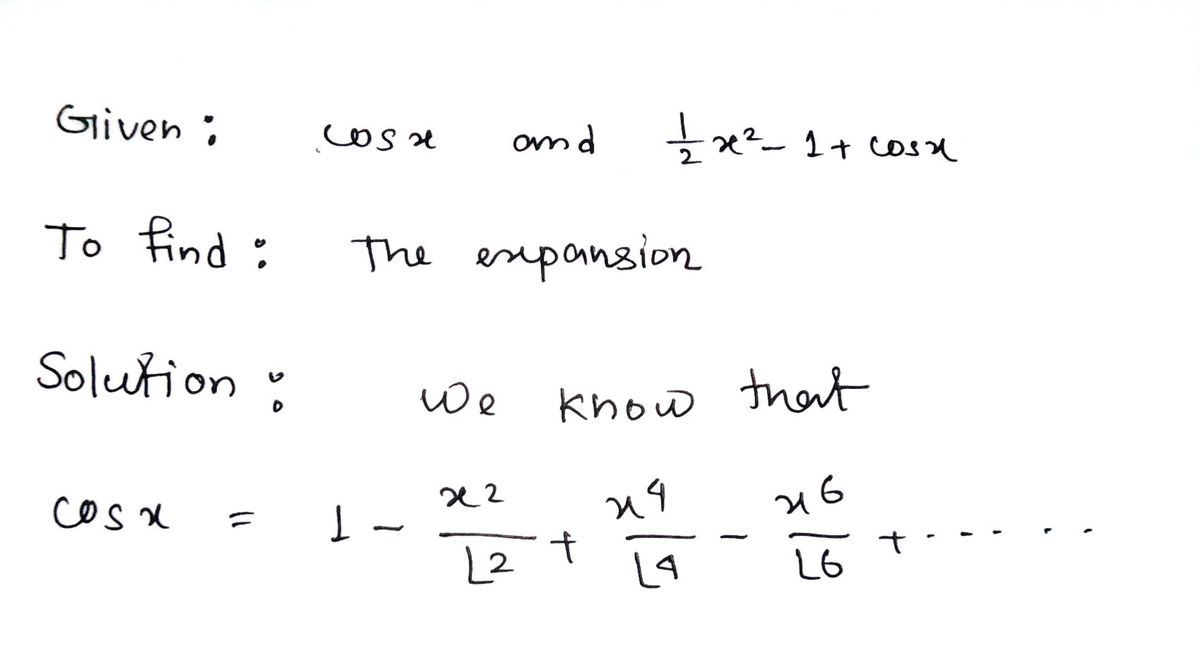 Given : cos x and 1/2 x² - 1 + cos x
To find : The expansion
Solution : We know that
cos x = 1 - x²/⌊2 + x⁴/⌊4 - x⁶/⌊6 + ......